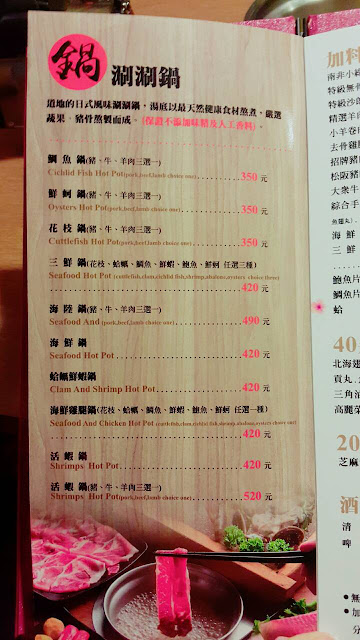 鍋 涮涮鍋
道地的日式風味涮涮鍋，湯底以最天然健康食材熬煮，嚴選
蔬果、豬骨熬製而成。(保證不添加味精及人工香料)。
鯛魚鍋(豬、牛、羊肉三選一)
Cichlid Fish Hot Pot(pork,beef,lamb choice one)..........350 元
鮮蚵鍋(豬、牛、羊肉三選一)
Oysters Hot Pot(pork,beef,lamb choice one)..........350 元
花枝鍋(豬、牛、羊肉三選一)
Cuttlefish Hot Pot(pork,beef,lamb choice one)..........350 元
三鮮鍋(花枝、蛤蠣、鯛魚、鮮蝦、鮑魚、鮮蚵 任選三種)
Seafood Hot Pot (cuttlefish,clam,cichlid fish,shrimp,abalone,oysters choice three)
..........420 元
海陸鍋(豬、牛、羊肉三選一)
Seafood And (pork,beef,lamb choice one)..........490 元
海鮮鍋
Seafood Hot Pot..........420 元
蛤蠣鮮蝦鍋
Clam And Shrimp Hot Pot..........420 元
海鮮雞腿鍋(花枝、蛤蠣、鯛魚、鮮蝦、鮑魚、鮮蚵 任選一種)
Seafood And Chicken Hot Pot (cuttlefish,clam,cichlid fish,shrimp,abalone,oysters choice one)
..........420 元
活蝦鍋
Shrimps Hot Pot..........420 元
活蝦鍋(豬、牛、羊肉三選一)
Shrimps Hot Pot(pork,beef,lamb choice one)..........520 元
加料
南非小
特級無骨
特級沙
精選羊肉
小羊卷
去骨雞
招牌豬
松阪豬
大衆牛
綜合手
魚雞丸
海鮮
三鮮
鮑魚片
鯛魚片
蛤
40
北海道
貢丸、
三角油
高麗菜
20
芝麻
酒
清
啤
●無
●加